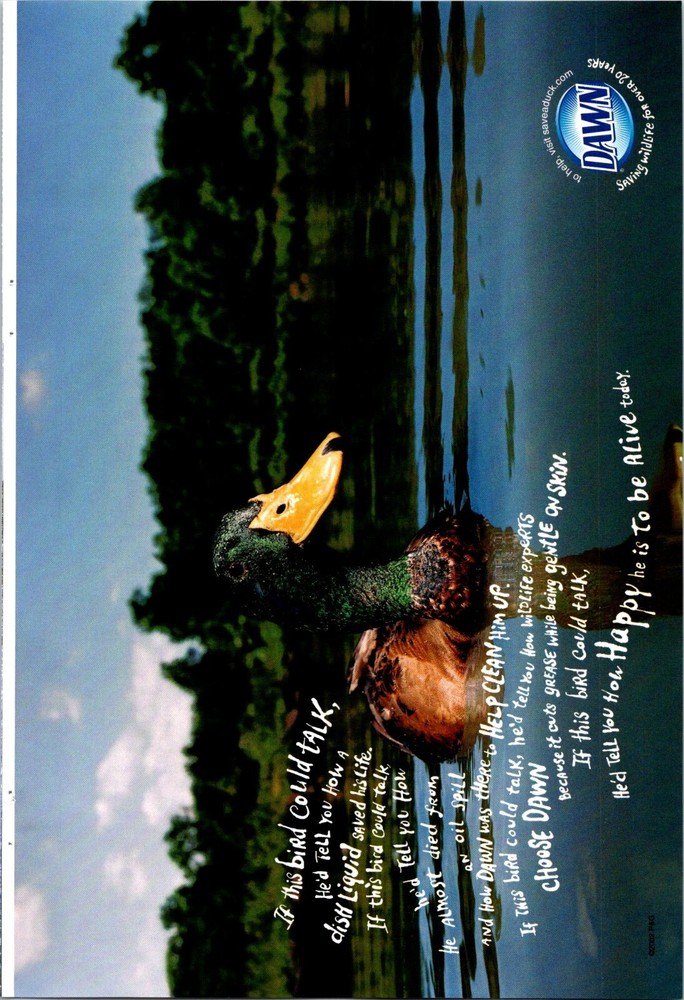 If this bird could talk,
He'd Tell you How a
dish Liquid saved his life.
If this bird could talk,
he'd Tell you How
He almost died from
an oil spill
and How DAWN was there to HELP CLEAN Him UP.
If This bird could talk, he'd Tell you How wildLife experts
CHOOSE DAWN
because it cuts GREASE while being gentle on skin.
If this bird could talk,
He'd Tell you How Happy he is To be ALive today.
to help, visit saveaduck.com
DAWN
Saving wildlife for over 20 years
©2009 P&G